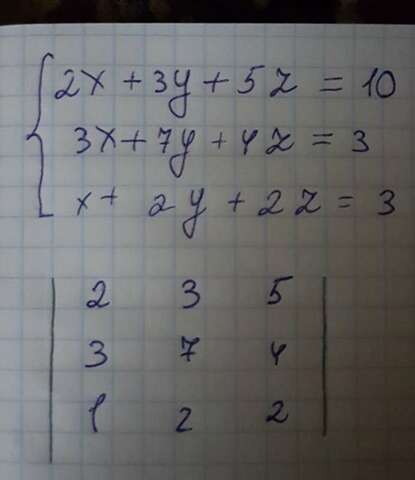 2x + 3y + 5z = 10
3x + 7y + 4z = 3
x + 2y + 2z = 3
2 3 5
3 7 4
1 2 2